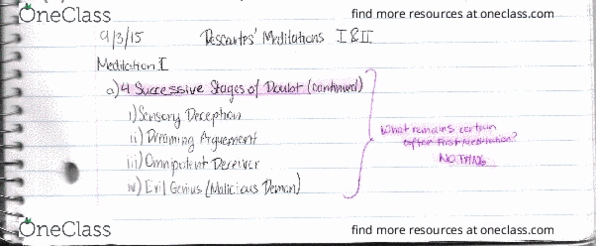 OneClass
find more resources at oneclass.com
9/3/15 Descartes' Meditations I & II
Meditation I
a) 4 Successive Stages of Doubt (continued)
i) Sensory Deception
ii) Dreaming Arguement
iii) Omnipotent Deceiver
iv) Evil Genius (Malicious Demon)
What remains certain
after First Meditation?
NOTHING
OneClass
find more resources at oneclass.com